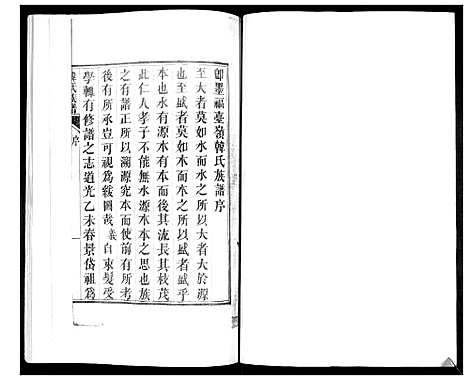 卽墨福臺嶺韓氏族譜序
至大者莫如水而水之所以大者大於源
也至盛者莫如木而木之所以盛者盛乎
本也水有源木有本而後其流長其枝茂
此仁人孝子不能無水源木本之思也族
之有譜正所以溯源究本而使前有所考
後有所承豈可視為緩圖哉羲自束髮受
學輙有修譜之志道光乙未春景岱祖爲
韓氏族譜
序
一